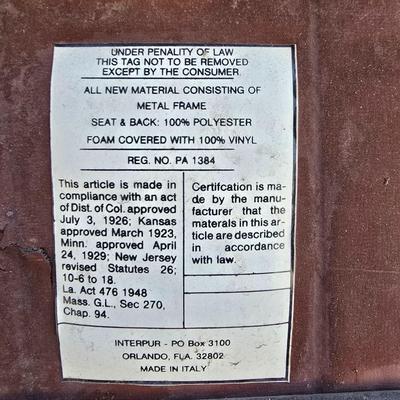 UNDER PENALITY OF LAW
THIS TAG NOT TO BE REMOVED
EXCEPT BY THE CONSUMER
ALL NEW MATERIAL CONSISTING OF
METAL FRAME
SEAT & BACK: 100% POLYESTER
FOAM COVERED WITH 100% VINYL
REG. NO. PA 1384
This article is made in
compliance with an act
of Dist. of Col. approved
July 3, 1926; Kansas
approved March 1923,
Minn. approved April
24, 1929; New Jersey
revised Statutes 26;
10-6 to 18.
La. Act 476 1948
Mass. G.L., Sec 270,
Chap. 94.
Certifcation is ma-
de by the manu-
facturer that the
materals in this ar-
ticle are described
in accordance
with law.
INTERPUR - PO Box 3100
ORLANDO, FLA. 32802
MADE IN ITALY